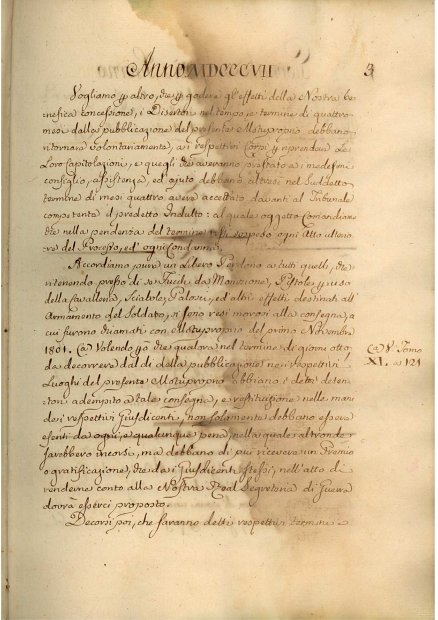 Anno MDCCCVII
3
Vogliamo p altro, che p godere gl'effetti della Nostra be
nefica concessione, i Disertori nel tempo, e termine di quattro
mesi dalla pubblicazione del presente Motuproprio debbano
ritornare volontariamente, a i respettivi Corpi p riprendere le
Loro Capitolazioni, e quegli che averanno prestato a i medesimi
consiglio, assistenza, ed ajuto debbano altresì nel suddetto
termine di mesi quattro avere accettato davanti al Tribunale
competente il predetto Indulto: al quale oggetto Comandiamo
che nella pendenza del termine resti sospeso ogni Atto ulterio
re del Processo, ed' ogni Condanna.
Accordiamo pure un Libero Perdono a tutti quelli, che
ritenendo presso di se Fucili da Munizione, Pistole p uso
della Cavalleria, Sciable, Palosci, ed' altri effetti destinati all'
Armamento del Soldato, si sono resi morosi alla consegna, a
cui furono chiamati con Motuproprio del primo Novembre
1801. Ca Volendo, che qualora nel termine di giorni otto
da decorrere dal dì della pubblicazione nei respettivi
Luoghi del presente Motuproprio abbiano i detti deten
tori adempito a tale consegna, e restituzione nelle mani
dei respettivi Giusdicenti, non solamente debbano essere
esenti da ogni, e qualunque pena, nella quale altronde
sarebbero incorsi, ma debbano di più ricevere un Premio
o gratificazione, che dai Giusdicenti stessi, nell'atto di
renderne conto alla Nostra Real Segreteria di Guerra
dovrà esserci proposto.
Decorsi poi, che saranno detti respettivi termini e
Ca V. Tomo
XL. a 121